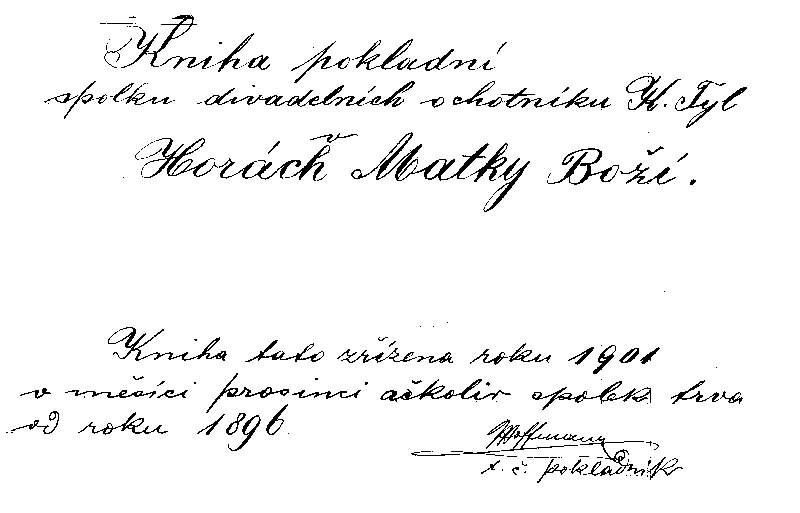 Kniha pokladní
spolku divadelních ochotníku K. Tyl
v
Horách Matky Boží.
Kniha tato zřízena roku 1901
v měsíci prosinci ačkoliv spolek trva
od roku 1896
Hoffmann
t. č. pokladník